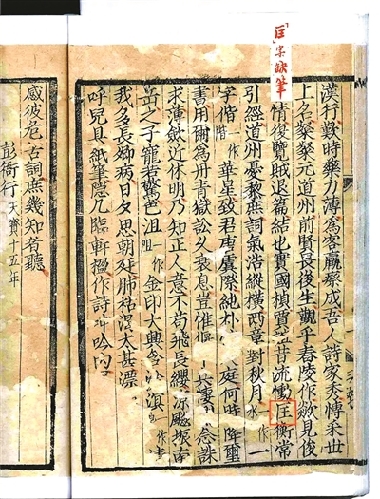 「匡」字缺筆
漢行歎時藥力薄為客羸瘵成吾人詩家秀博采世
上名粲粲元道州前賢畏後生觀乎舂陵作欻見俊
情復覽賊退篇結也實國楨賈誼昔流慟匡衡常
引經道州憂黎庶詞氣浩縱橫兩章對秋月一作水一
字偕一作華星致君唐虞際純朴大庭何時降璽
書用爾為丹青獄訟久衰息豈惟偃兵悽念誅
求薄斂近休明乃知正人意不苟飛長纓涼飆振南
岳之子寵若驚色沮一作金印大興含滄溟一作清
我多長卿病日夕思朝廷肺枯渴太甚漂
呼兒具紙筆隱几臨軒楹作詩呻吟
感彼危古詞庶幾知者聽
彭衙行 天寶十五年